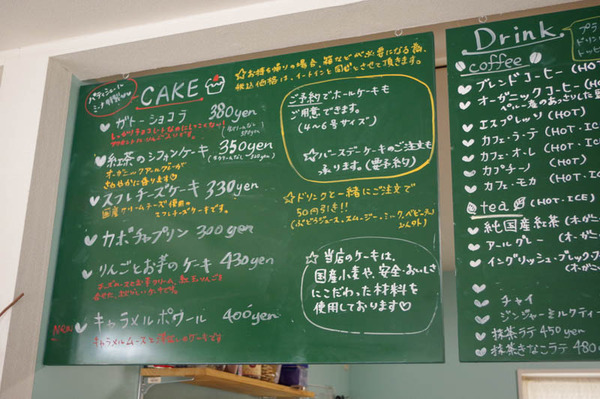 パティシエール
CAKE
ガトーショコラ 380yen
紅茶のシフォンケーキ 350yen
オーガニックアールグレーが
さわやかに香ります
スフレチーズケーキ 330yen
国産クリームチーズ使用の
スフレチーズケーキです。
カボチャプリン 300yen
りんごとお芋のケーキ 430yen
NEW
キャラメルポワール 400yen
☆お持ち帰りの場合、箱などが必要になる為、
税込価格は、イートインと同じとさせて頂きます。
ご予約でホールケーキも
ご用意できます。
(4〜6号サイズ)
☆バースデーケーキのご注文も
承ります。(要予約)
☆ドリンクと一緒にご注文で
50円引き!!
☆当店のケーキは、
国産小麦や、安全・おいしさ
にこだわった材料を
使用しております♡
Drink.
coffee
ブレンドコーヒー (HOT
オーガニックコーヒー (HO
ペルー産のあっさりした
エスプレッソ (HOT)
カフェ・ラ・テ (HOT・IC
カフェ・オ・レ (HOT・ICE
カプチーノ (HOT)
カフェ・モカ (HOT・ICE)
tea
純国産紅茶 (オーガニ
アールグレー (オーガニ
イングリッシュ・ブレックフ
チャイ
ジンジャーミルクティー
抹茶ラテ 450yen
抹茶きなこラテ 480